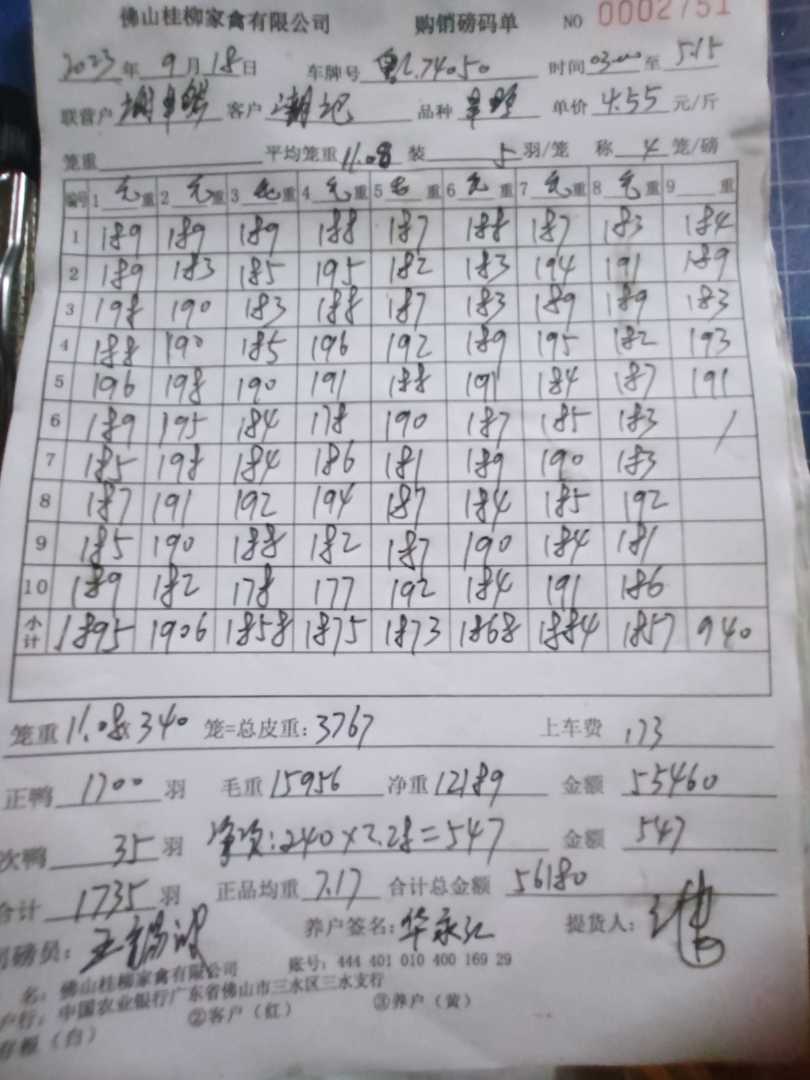 佛山桂柳家禽有限公司 购销磅码单 NO 0002751
2023年9月18日 车牌号 74050 时间03:00至5:15
联营户 客户 潮记 品种 单价 4.55 元/斤
笼重 平均笼重 11.08 装 5 羽/笼 称 4 笼/磅
编号 1 毛重 2 毛重 3 毛重 4 毛重 5 毛重 6 毛重 7 毛重 8 毛重 9 重
1 189 189 189 188 187 188 187 183 184
2 189 183 185 195 182 183 194 191 189
3 198 190 183 188 187 183 189 189 183
4 188 190 185 196 192 189 195 182 193
5 196 198 190 191 188 191 184 187 191
6 189 195 184 178 190 187 185 183 /
7 185 198 184 186 181 189 190 183
8 187 191 192 194 187 184 185 192
9 185 190 188 182 187 190 184 181
10 189 182 178 177 192 184 191 186
小计 1895 1906 1858 1875 1873 1868 1884 1857 940
笼重 11.08x 340 笼=总皮重: 3767 上车费 173
正鸭 1700 羽 毛重 15956 净重 12189 金额 55460
次鸭 35 羽 净次:240×2.28=547 金额 547
合计 1735 羽 正品均重 7.17 合计总金额 56180
司磅员: 养户签名: 华永江 提货人:
名: 佛山桂柳家禽有限公司 账号: 444 401 010 400 169 29
户行: 中国农业银行广东省佛山市三水区三水支行
存根(白) ②客户(红) ③养户(黄)